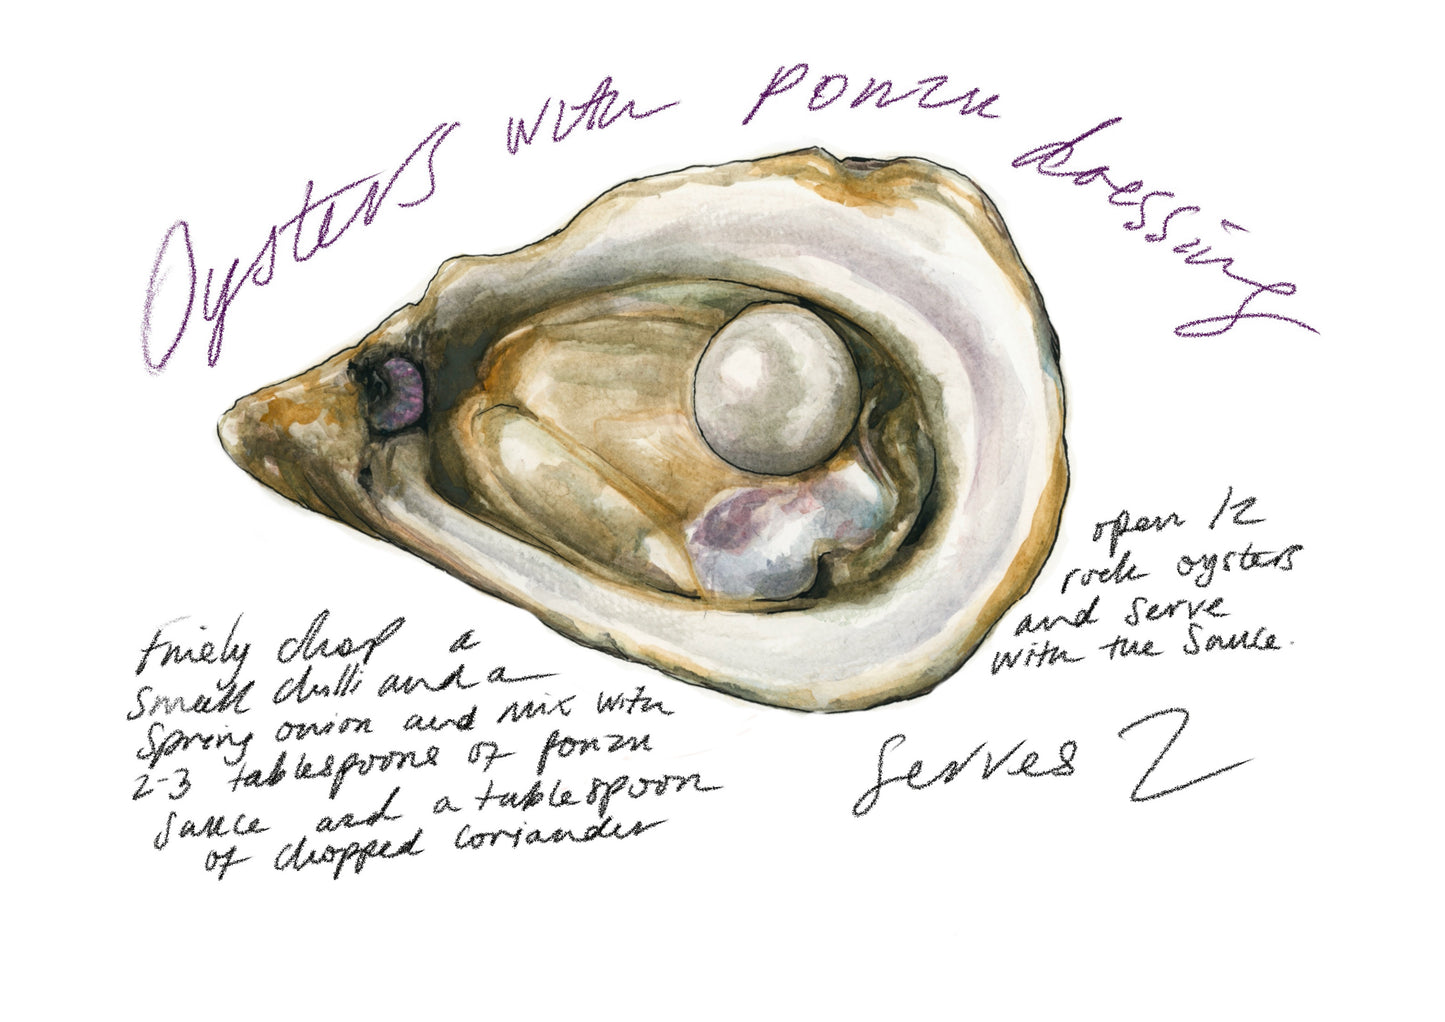 Oysters with ponzu dressing
Finely chop a
small chilli and a
spring onion and mix with
2-3 tablespoons of ponzu
sauce and a tablespoon
of chopped coriander
open 12
rock oysters
and serve
with the sauce.
Serves 2